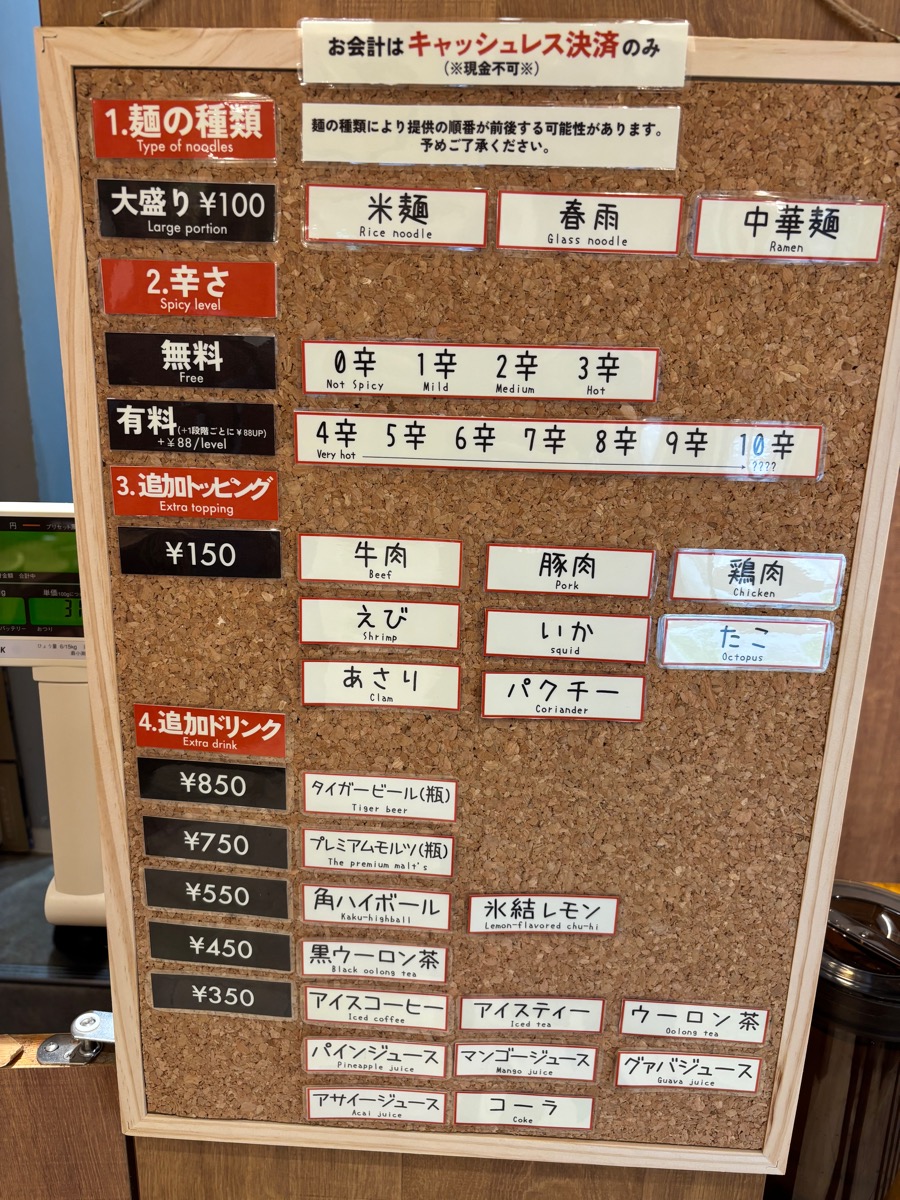 お会計はキャッシュレス決済のみ
(※現金不可※)
1.麺の種類
Type of noodles
麺の種類により提供の順番が前後する可能性があります。
予めご了承ください。
大盛り ¥100
Large portion
米麺
Rice noodle
春雨
Glass noodle
中華麺
Ramen
2.辛さ
Spicy level
無料
Free
0辛 1辛 2辛 3辛
Not Spicy Mild Medium Hot
有料(+1段階ごとに¥88UP)
+¥88/level
4辛 5辛 6辛 7辛 8辛 9辛 10辛
Very hot ????
3.追加トッピング
Extra topping
¥150
牛肉
Beef
豚肉
Pork
鶏肉
Chicken
えび
Shrimp
いか
squid
たこ
Octopus
あさり
Clam
パクチー
Coriander
4.追加ドリンク
Extra drink
¥850
タイガービール(瓶)
Tiger beer
¥750
プレミアムモルツ(瓶)
The premium malt's
¥550
角ハイボール
Kaku-highball
氷結レモン
Lemon-flavored chu-hi
¥450
黒ウーロン茶
Black oolong tea
¥350
アイスコーヒー
Iced coffee
アイスティー
Iced tea
ウーロン茶
Oolong tea
パインジュース
Pineapple juice
マンゴージュース
Mango juice
グァバジュース
Guava juice
アサイージュース
Acai juice
コーラ
Coke